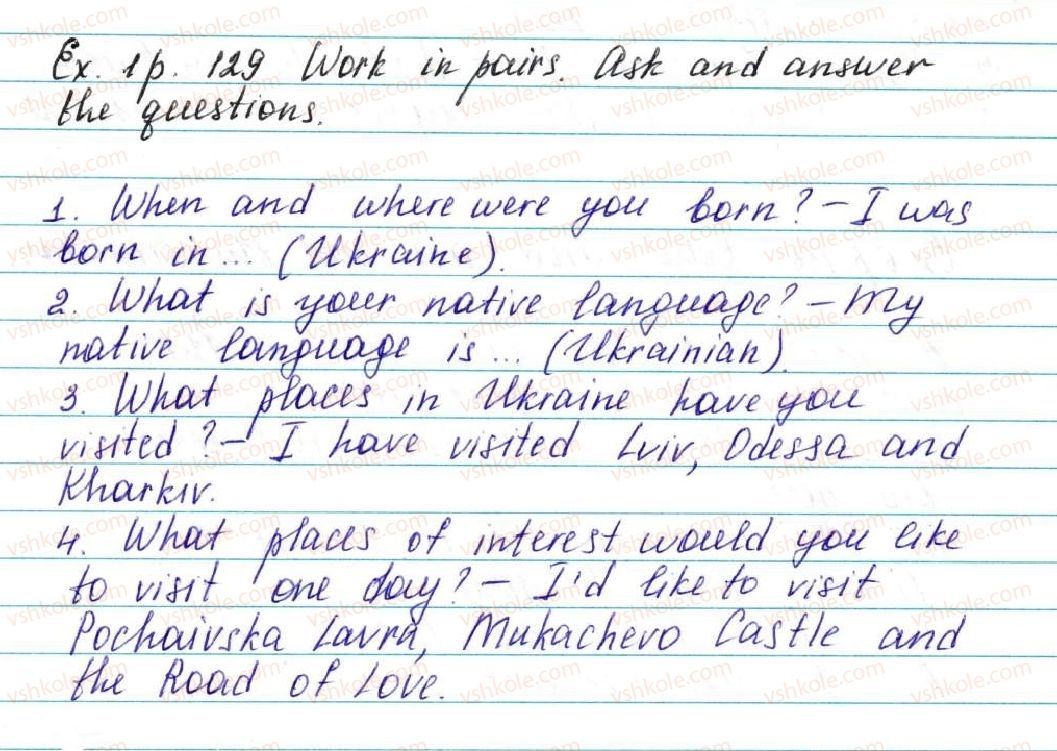 Ex. 1 p. 129 Work in pairs. Ask and answer
the questions.
1. When and where were you born? – I was
born in ... (Ukraine).
2. What is your native language? – My
native language is ... (Ukrainian).
3. What places in Ukraine have you
visited? – I have visited Lviv, Odessa and
Kharkiv.
4. What places of interest would you like
to visit one day? – I'd like to visit
Pochaivska Lavra, Mukachevo Castle and
the Road of Love.